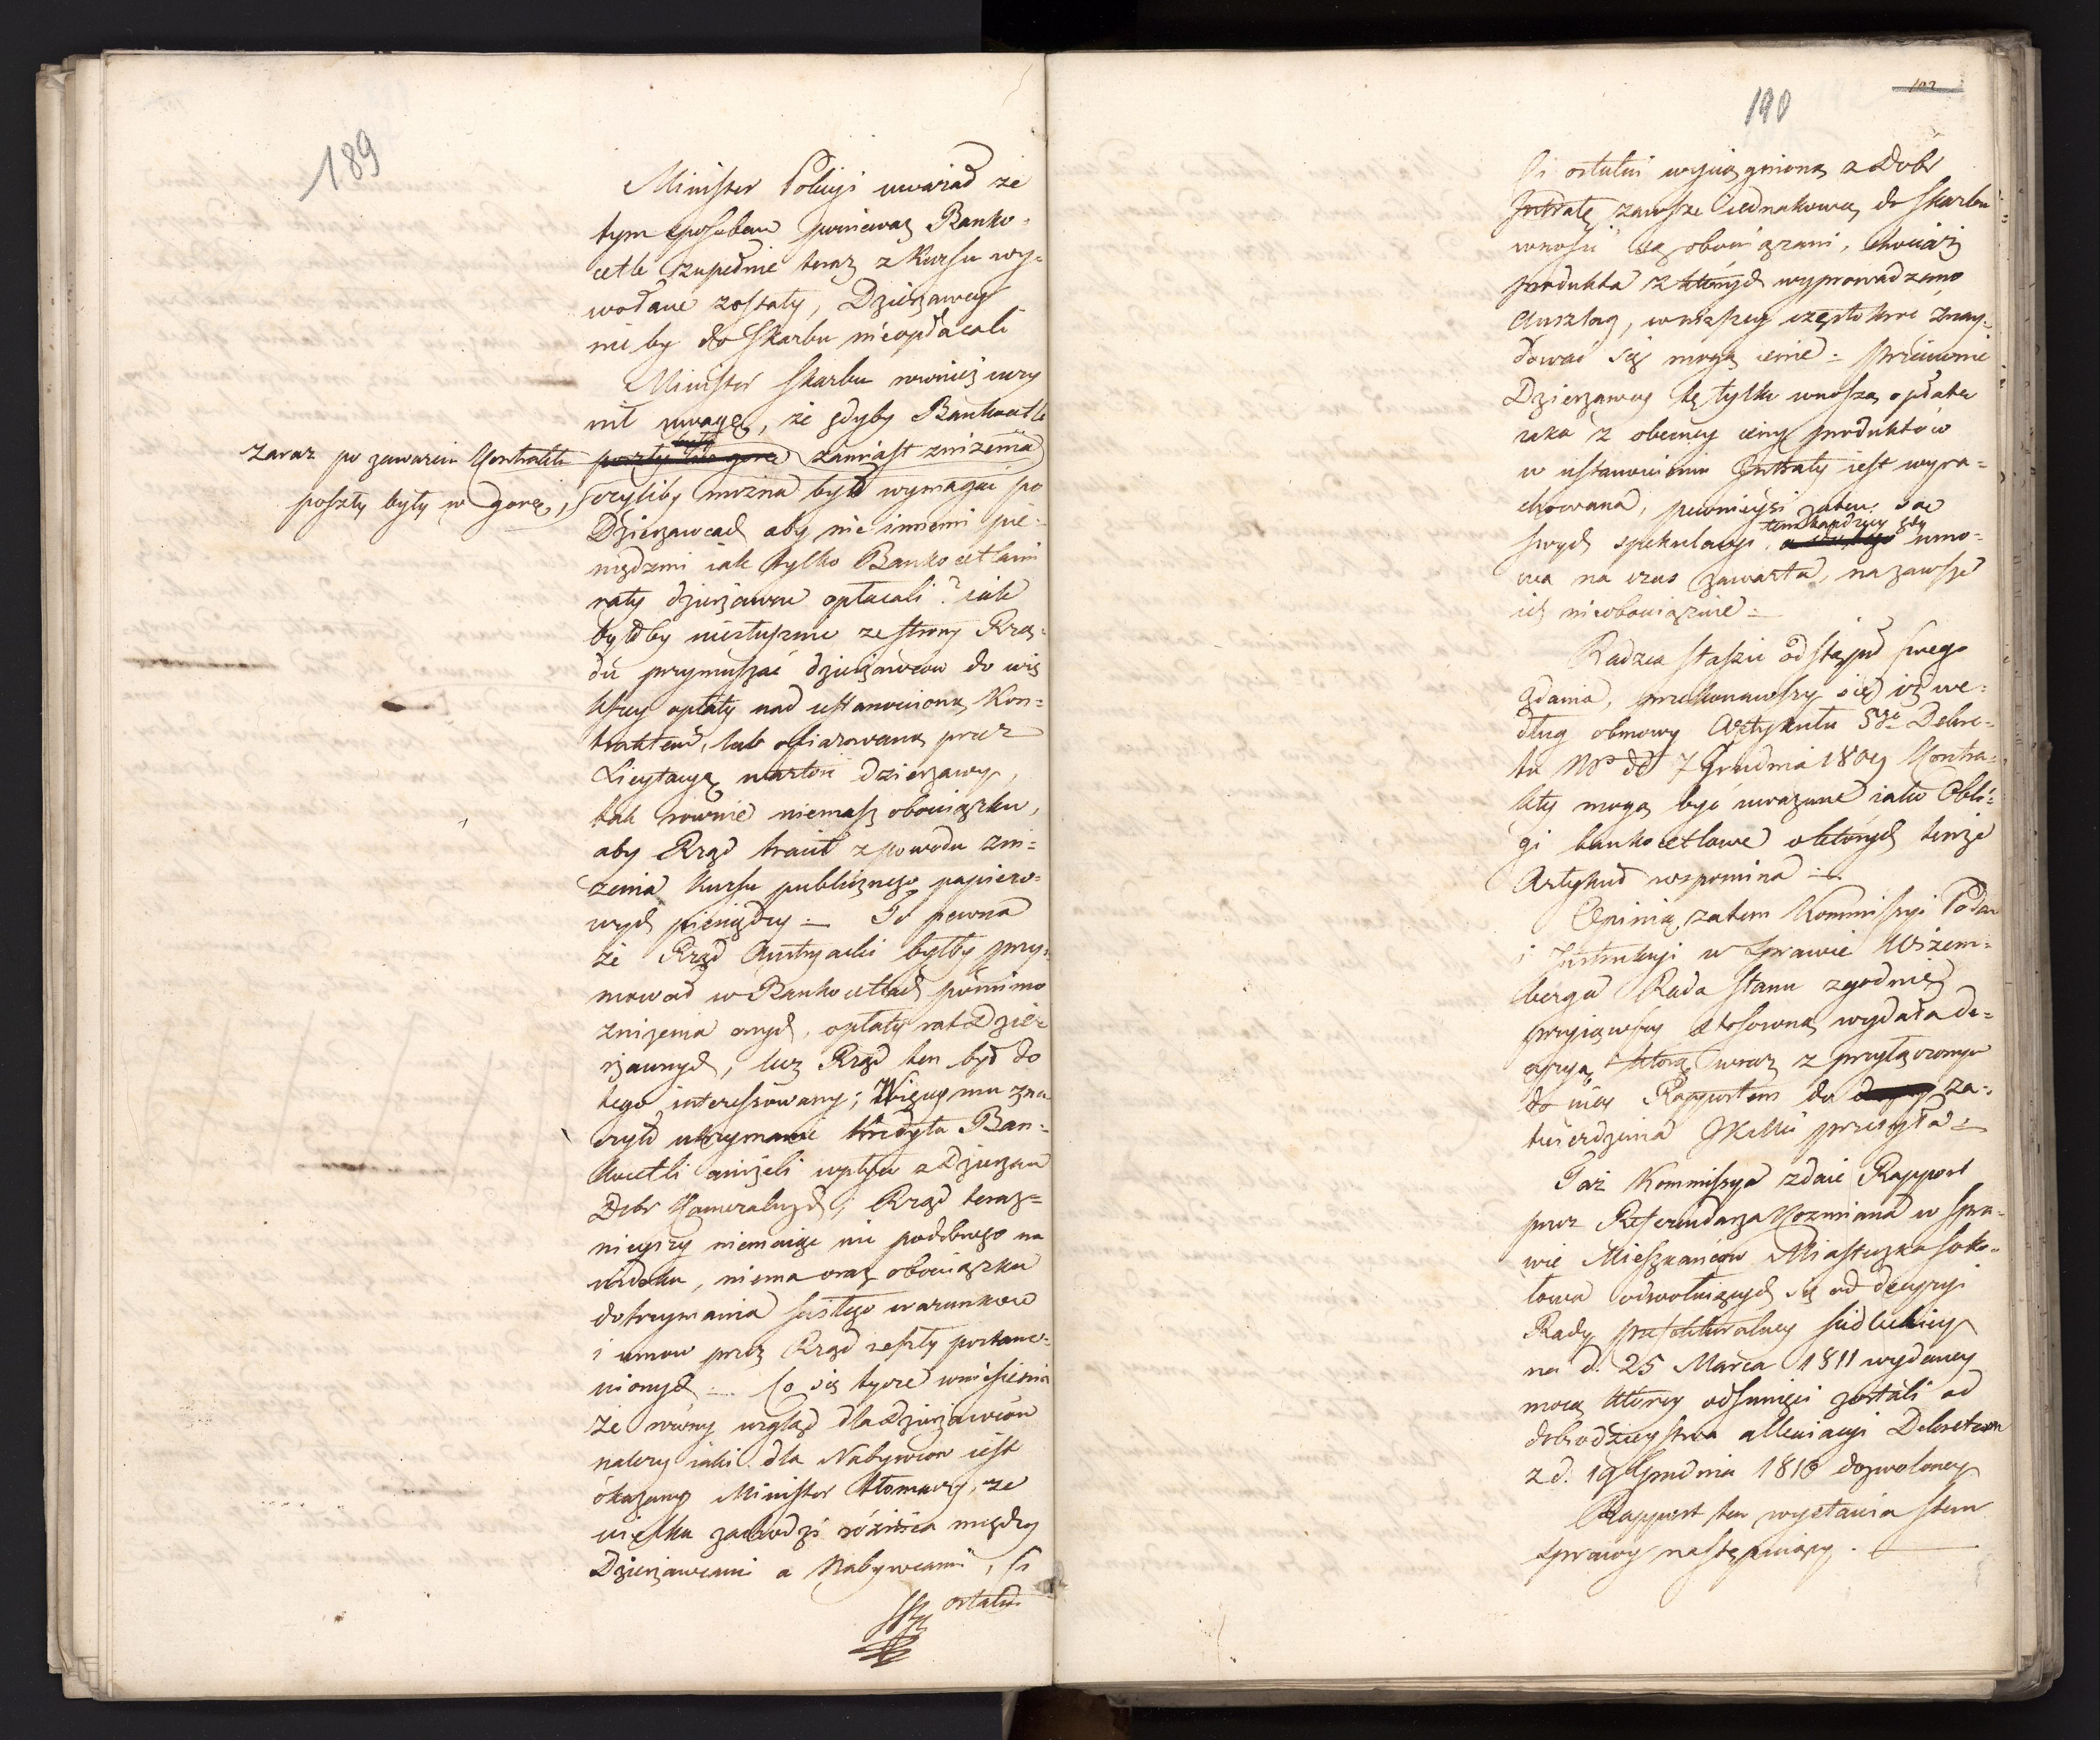 189
Minister Policyi uważał że
tym sposobem ponieważ Banko-
cetle zupełnie teraz z Kursu wy-
wołane zostały, Dzierżawcy
nic by do Skarbu nieopłacali
Minister Skarbu rowniez uczy
nił uwagę, że gdyby Bankocetle
zaraz po zawarciu Kontraktu
poszły były w gorę,
poszły były w gorę zamiast zniżenia
czyliby można było wymagać po
Dzierżawcach aby nie innemi pie-
niędzmi iak tylko Bankocetlami
raty dzierżawne opłacali? iak
byłoby niesłusznie ze strony Rzą-
du przymuszać dzierżawców do wię
kszey opłaty nad ustanowioną Kon-
traktem, lub ofiarowaną przez
Licytacyą wartość dzierżawy,
tak rownie niemasz obowiązku,
aby Rząd tracił z powodu zni-
żenia Kursu publicznego papiero-
wych pieniędzy :— To pewna
że Rząd Austryacki byłby przy-
mował w Bankocetlach pomimo
zniżenia onych, opłaty rat dzier
żawnych, lecz Rząd ten był do
tego interessowany; Więcey mu zna-
czyło utrzymanie kredytu Ban-
kocetli aniżeli wpływ z dzierżaw
Dobr Kameralnych, Rząd teraz-
nieyszy niemaiąc nic podobnego na
widoku, niema oraz obowiązku
dotrzymania ścisłego warunkow
i umow przez Rząd zeszły postano-
wionych :— Co się tycze wniesienia
że rowny wzgląd dla dzierżawców
należy iaki dla Nabywcow iest
okazany Minister tłomaczy, że
wielka zachodzi różnica między
Dzierżawcami a Nabywcami, Ci
ostatni
102
190
Ci ostatni wyciągnioną z Dobr
Intratę zawsze iednakową do Skarbu
wnosić są obowiązani, chociaż
produkta z których wyprowadzono
Anszlag, w niższey częstokroć znay-
dować się mogą cenie :— przeciwnie
Dzierżawcy tę tylko wnoszą opłatę
iaka z obecney ceny produktów
w ustanowieniu Intraty iest wyra-
chowana, pewnieysi zatem są
swych spekulacyi, tem bardziey gdy umo-
wa na czas zawarta, na zawsze
ich nieobowiązuie :—
Radca Staszic odstąpił swego
zdania, przekonawszy się iż we-
dług osnowy Artykułu 5go Dekre-
tu Nro dd 7 Grudnia 1809 Kontra-
kty mogą być uważane iako Obli-
gi bankocetlowe o których tenże
Artykuł wspomina :—
Opinią zatem Kommissyi Podań
i Instrukcyi w Sprawie Wizem-
berga Rada Stanu zgodnie
przyiąwszy stosowną wydała de-
cyzyą którą wraz z przyłączonym
do niey Rapportem do za-
twierdzenia JKMci przesyła :—
Taż Kommissya zdaie Rapport
przez Referendarza Kozmiana w spra-
wie Mieszkańców Miasteczka Soko-
łowa odwołuiących się od decyzyi
Rady prefekturalney Siedleckiey
na d. 25 Marca 1811 wydaney
mocą którey odsunięci zostali od
dobrodzieystwa alleniacyi Dekretem
z d. 19 Grudnia 1810 dozwoloney
Rapport ten wystawia stan
sprawy następuiący. —